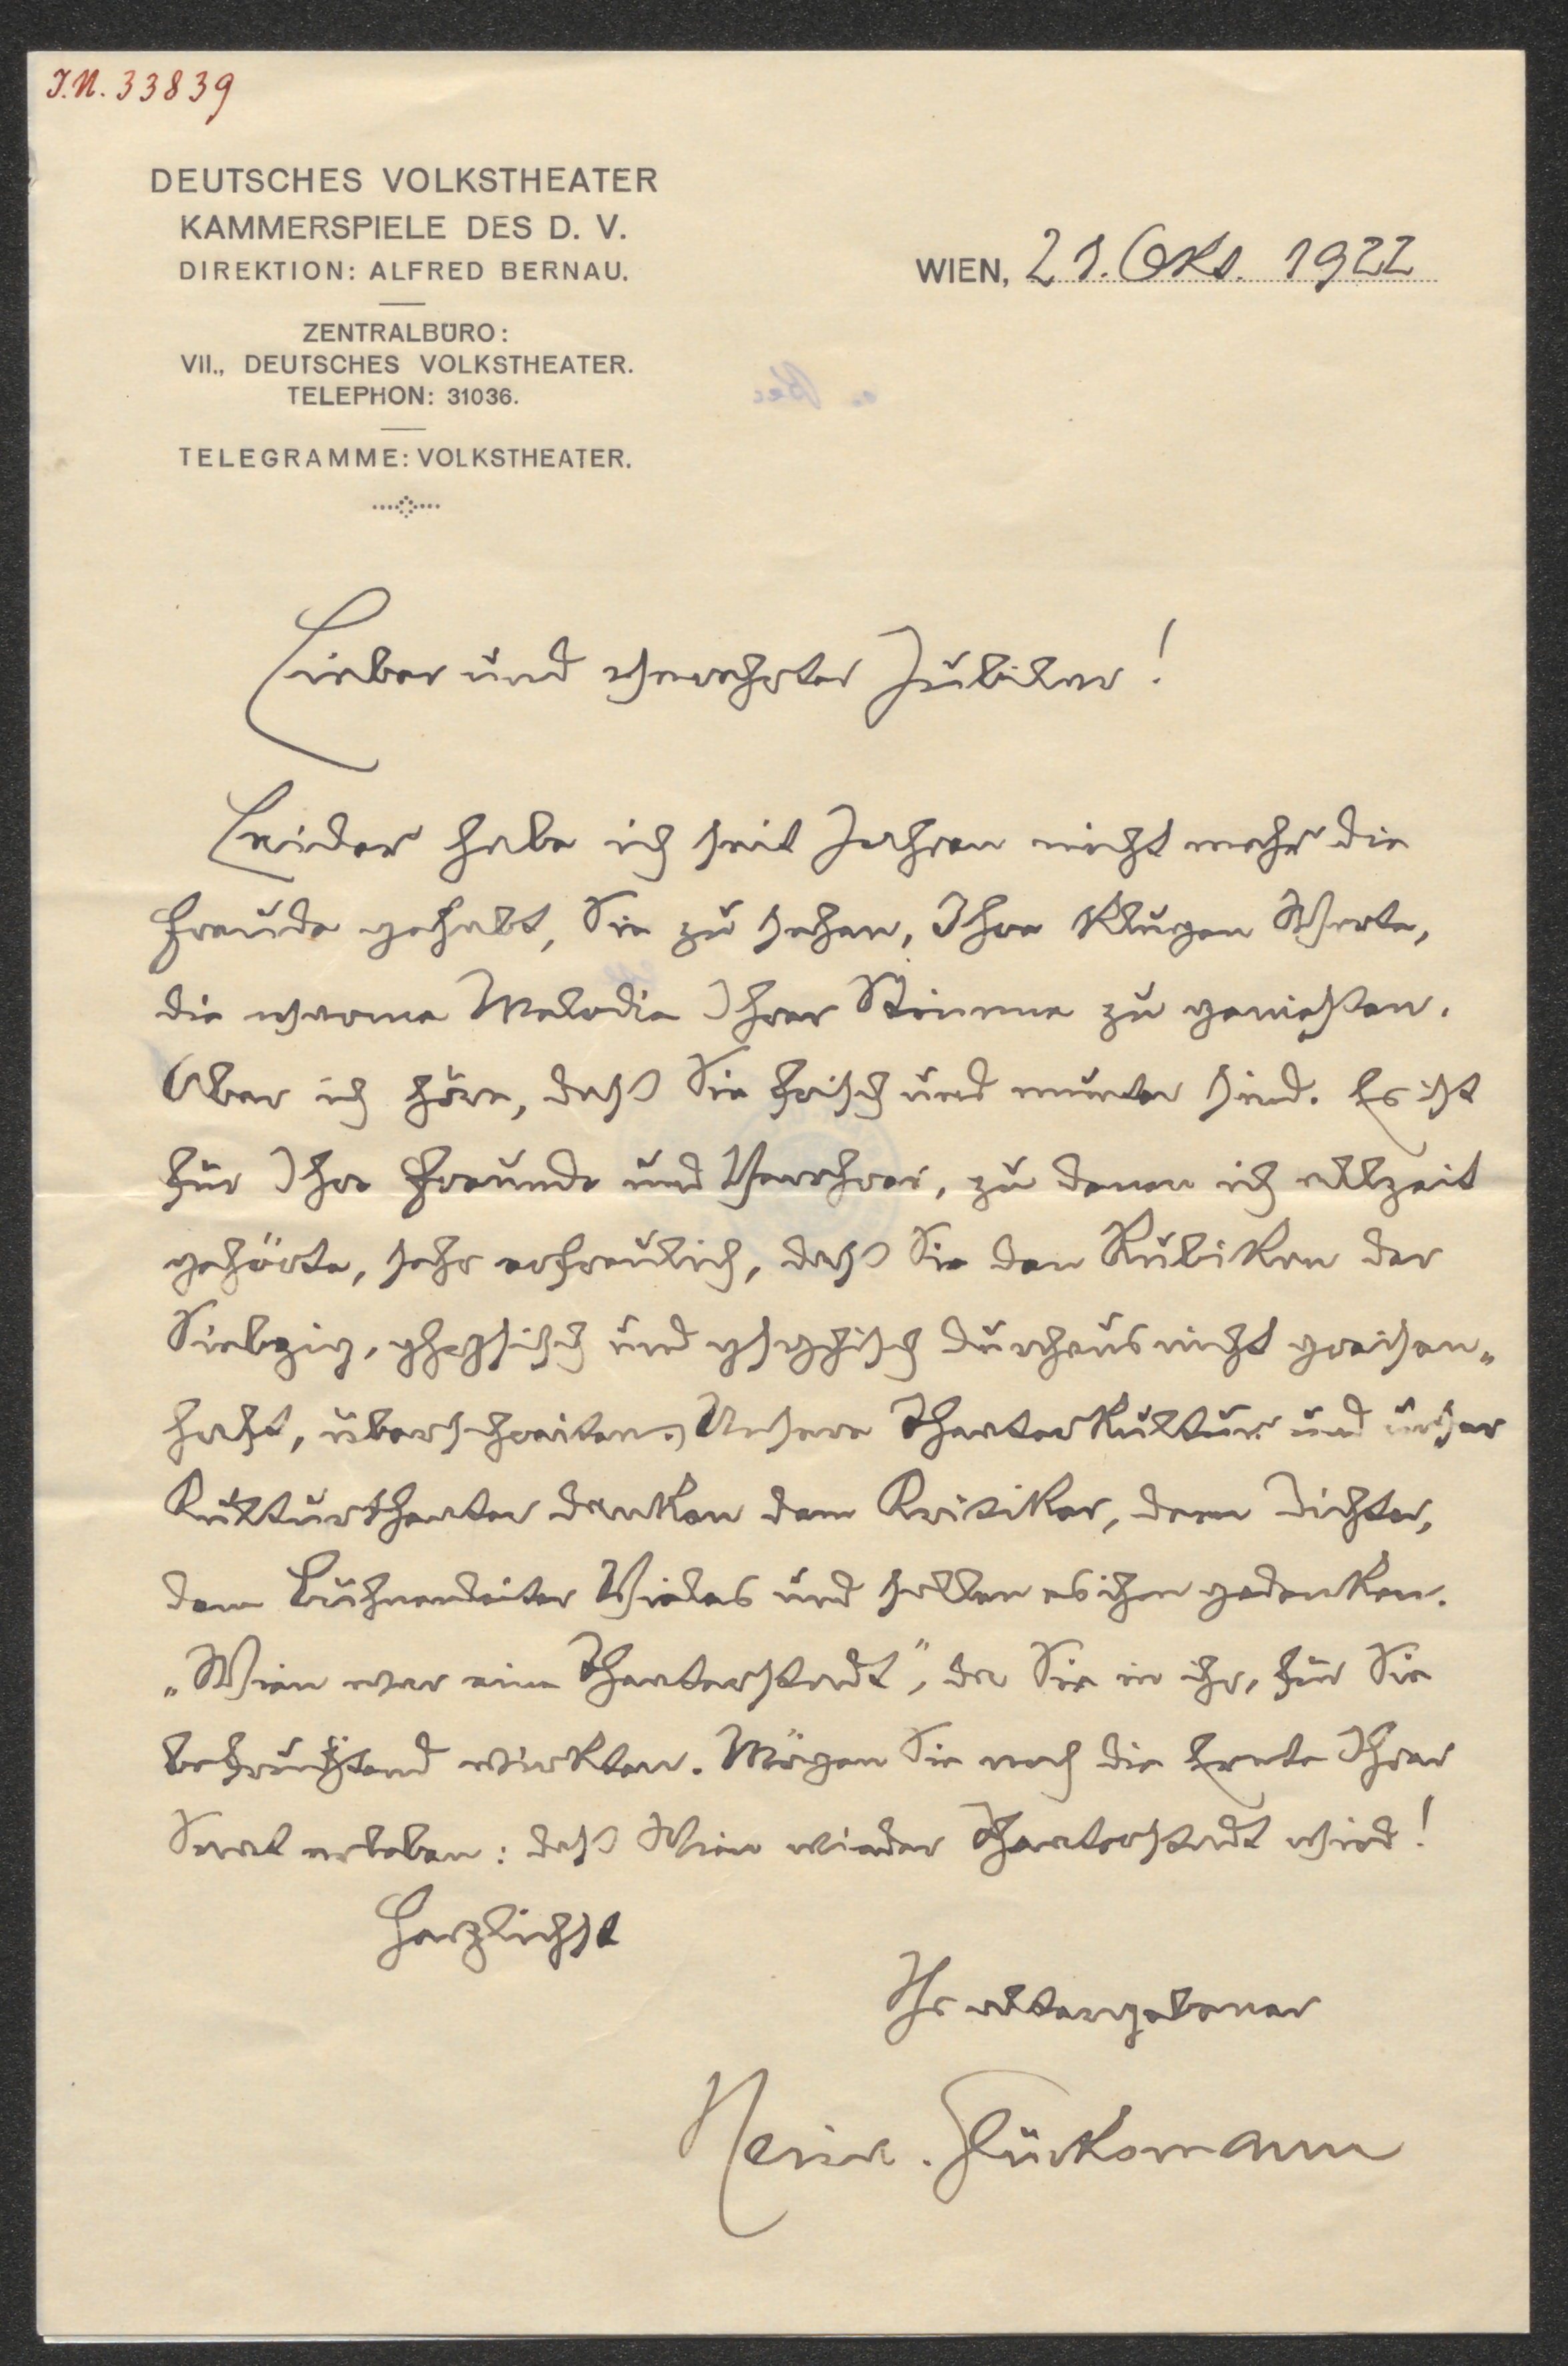 J.N. 33839
DEUTSCHES VOLKSTHEATER
KAMMERSPIELE DES D. V.
DIREKTION: ALFRED BERNAU.
WIEN, 21. Okt. 1922
ZENTRALBÜRO:
VII., DEUTSCHES VOLKSTHEATER.
TELEPHON: 31036.
TELEGRAMME: VOLKSTHEATER.
Lieber und verehrter Jubilar!
Leider habe ich seit Jahren nicht mehr die
Freude gehabt, Sie zu sehen, Ihre klugen Worte,
die warme Melodie Ihrer Stimme zu genießen.
Aber ich höre, daß Sie frisch und munter sind. Es ist
für Ihre Freunde und Verehrer, zu denen ich allzeit
gehörte, sehr erfreulich, daß Sie den Rubikon der
Siebzig, physisch und psychisch durchaus nicht greisen-
haft, überschreiten. Unsere Theaterkultur und unser
Kulturtheater danken dem Kritiker, dem Dichter,
dem Bühnenleiter Vieles und sollen es ihm gedenken.
„Wien war eine Theaterstadt", da Sie in ihr, für Sie
befruchtend wirkten. Mögen Sie noch die Ernte Ihrer
Saat erleben: daß Wien wieder Theaterstadt wird!
Herzlichst
Ihr altergebener
Heinr. Glücksmann